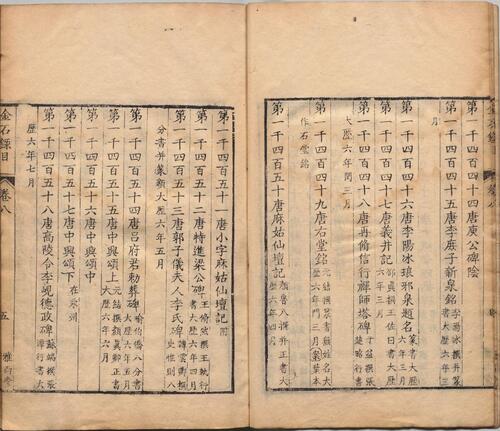 第一千四百四十四唐庾公碑陰
第一千四百四十五唐李庶子新泉銘 李陽冰撰并篆書大歷六年三
月
第一千四百四十六唐李陽冰琅邪泉題名 篆書大歷六年三月
第一千四百四十七唐義井記 邵真撰王佐書大歷
第一千四百四十八唐再脩信行禪師塔碑 于益撰張楚昭行書
大歷六年閏三月
第一千四百四十九唐右堂銘 元結撰篆書無姓名大歷六年閏三月
作石堂銘
第一千四百五十唐麻姑仙壇記 顏魯公撰并正書大歷六年四月
第一千四百五十一唐小字麻姑仙壇記
第一千四百五十二唐特進梁公碑 王脩撰王執行書大歷六年四月
第一千四百五十三唐郭子儀夫人李氏碑
分書并篆額大歷六年五月
第一千四百五十四唐呂府君勅葬碑 八分書大歷六年五月
第一千四百五十五唐中興頌上 元結撰顏真卿正書大歷六年六月
第一千四百五十六唐中興頌中
第一千四百五十七唐中興頌下
第一千四百五十八唐高陵令李峴德政碑 蘇端撰張行書大
歷六年七月
金石錄目
卷八
五
雅雨堂